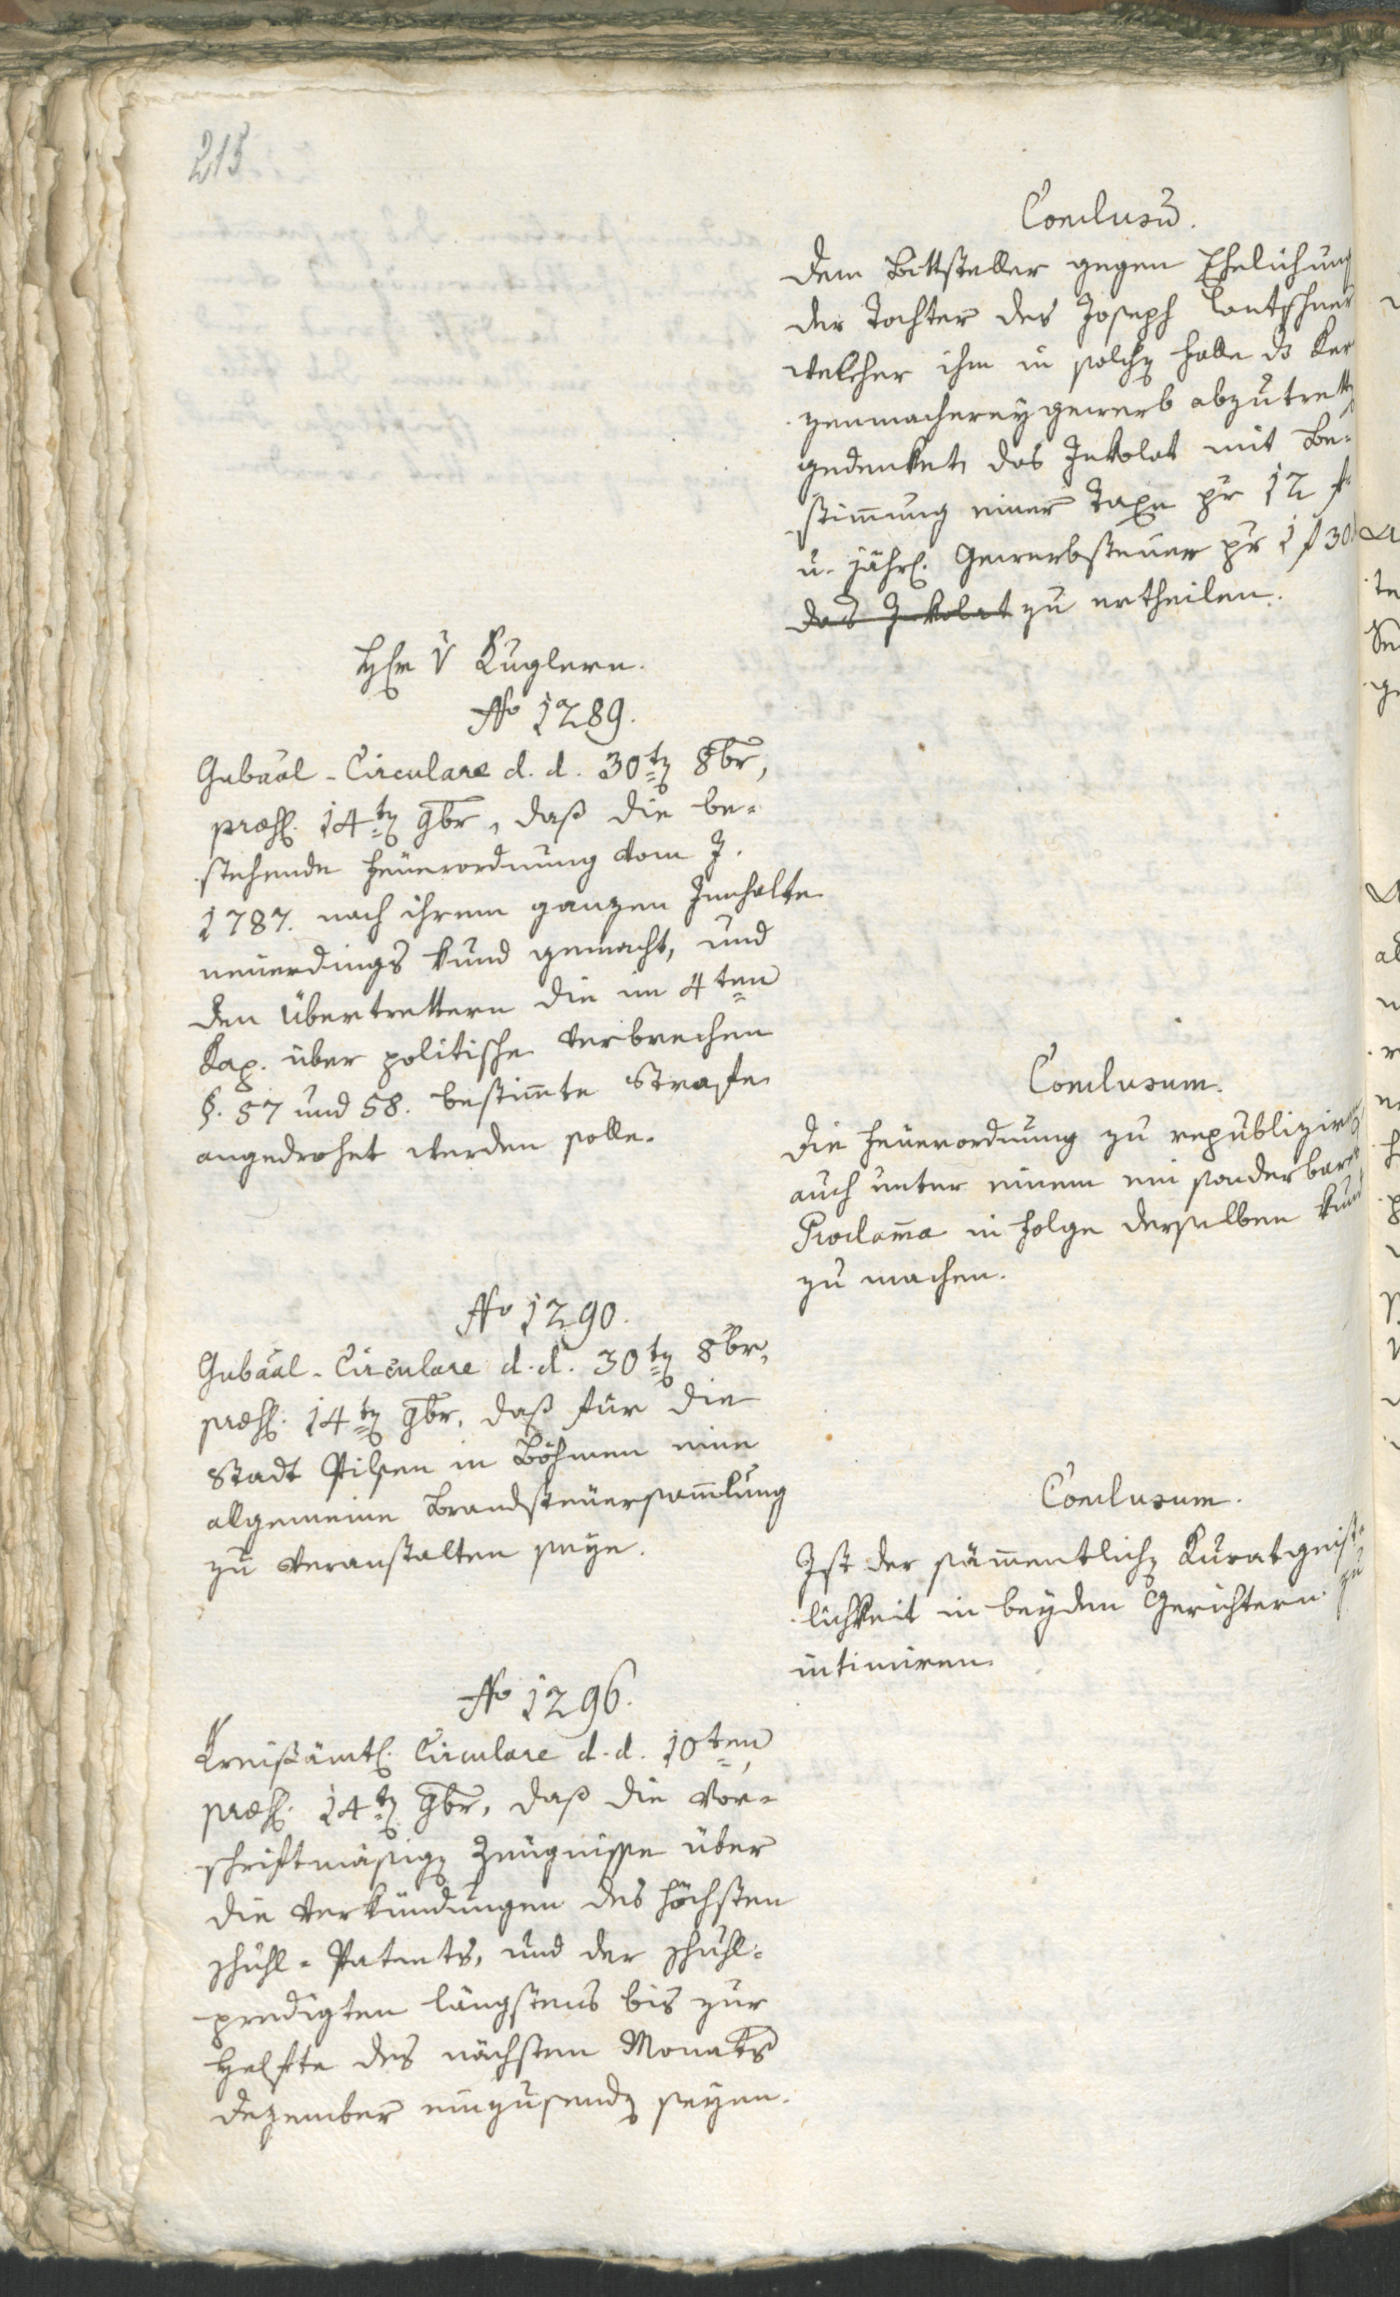 215
Conclusū.
Dem Bittsteller gegen Ehelichung
der Tochter des Joseph Lantschner
welcher ihm in solchen Falle das Ker
zenmacherey gewerb abzutretten
gedenket, das Inkolat mit Be-
stimmung einer Taxe pr 12 f
u. jährl. Gewerbsteuer pr 1 f 30
das Inkolat zu ertheilen.
Hr v Kuglern.
No 1289.
Gubaal-Circulare d. d. 30ten 8br,
præs. 14ten 9br, daß die be-
stehende Feuerordnung vom J.
1787. nach ihrem ganzen Innhalte
neuerdings kund gemacht, und
den Übertrettern die im 4ten
Kap. über politische Verbrechen
§. 57 und 58. bestimmte Strafe
angedrohet werden solle.
Conclusum.
Die Feuerordnung zu republiziren,
auch unter einem ein sonderbares
Proclama in Folge derselben kund
zu machen.
No 1290.
Gubaal-Circulare d. d. 30ten 8br,
præs. 14ten 9br, daß für die
Stadt Pilsen in Böhmen eine
allgemeine Brandsteuersammlung
zu veranstalten seye.
Conclusum.
Ist der sämmentlichen Kuratgeist-
lichkeit in beyden Gerichtern zu
intimiren.
No 1296.
Kreisämtl. Circulare d. d. 10ten,
præs. 14ten 9br, daß die vor-
schriftmäsigen Zeugnisse über
die Verkündungen des höchsten
Schuhl-Patents, und der Schuhl-
predigten längstens bis zur
Helfte des nächsten Monats
Dezember einzusenden seyen.